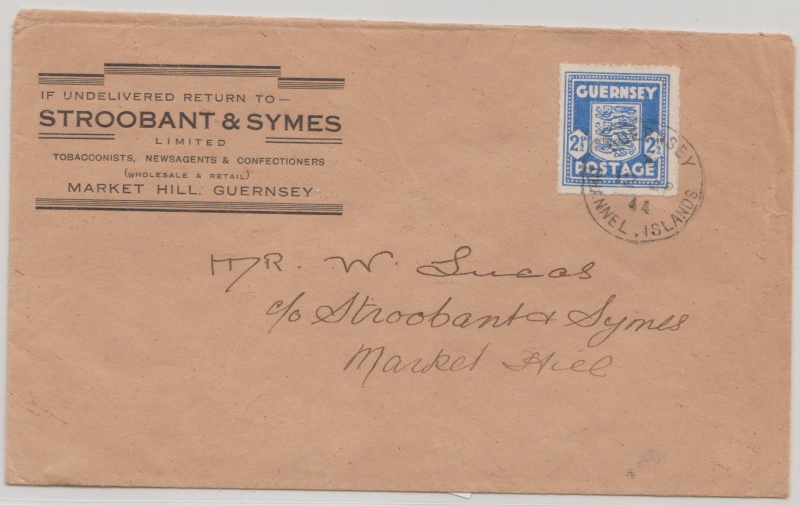 IF UNDELIVERED RETURN TO—
STROOBANT & SYMES
LIMITED
TOBACCONISTS, NEWSAGENTS & CONFECTIONERS
(WHOLESALE & RETAIL)
MARKET HILL. GUERNSEY
GUERNSEY
2½ 2½
POSTAGE
GUERNSEY
44
CHANNEL. ISLANDS
MR. W. Lucas
c/o Stroobant & Symes
Market Hill